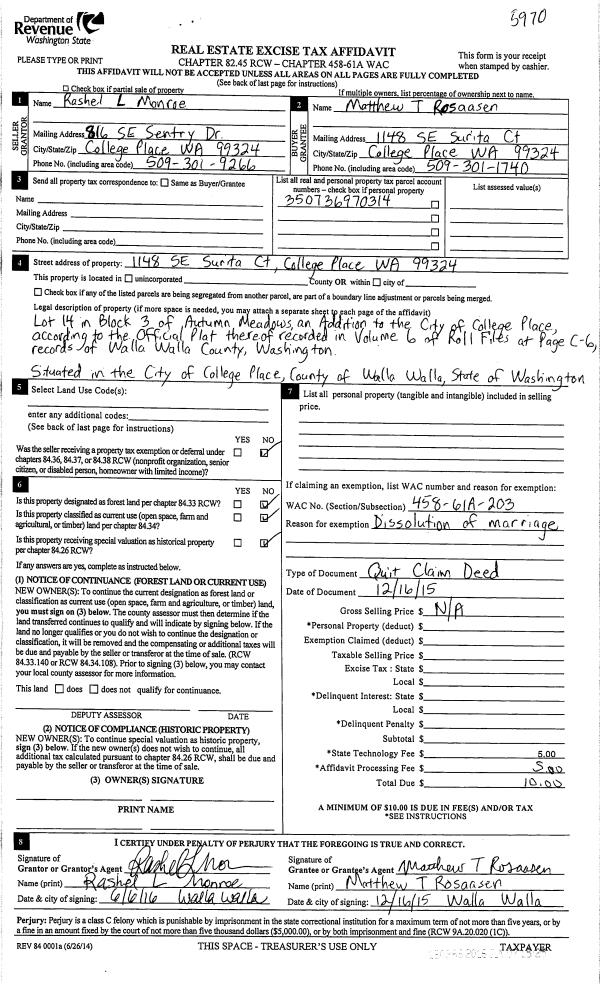 Department of
Revenue
Washington State
5970
PLEASE TYPE OR PRINT
REAL ESTATE EXCISE TAX AFFIDAVIT
CHAPTER 82.45 RCW – CHAPTER 458-61A WAC
This form is your receipt
when stamped by cashier.
THIS AFFIDAVIT WILL NOT BE ACCEPTED UNLESS ALL AREAS ON ALL PAGES ARE FULLY COMPLETED
(See back of last page for instructions)
☐ Check box if partial sale of property
If multiple owners, list percentage of ownership next to name.
1 Name Rashel L Monroe
SELLER GRANTOR
Mailing Address 816 SE Sentry Dr.
City/State/Zip College Place WA 99324
Phone No. (including area code) 509-301-9266
2 Name Matthew T Rosaasen
BUYER GRANTEE
Mailing Address 1148 SE Surita Ct
City/State/Zip College Place WA 99324
Phone No. (including area code) 509-301-1740
3 Send all property tax correspondence to: ☐ Same as Buyer/Grantee
Name
Mailing Address
City/State/Zip
Phone No. (including area code)
List all real and personal property tax parcel account
numbers – check box if personal property
350736970314
List assessed value(s)
4 Street address of property: 1148 SE Surita Ct, College Place WA 99324
This property is located in ☐ unincorporated County OR within ☐ city of
☐ Check box if any of the listed parcels are being segregated from another parcel, are part of a boundary line adjustment or parcels being merged.
Legal description of property (if more space is needed, you may attach a separate sheet to each page of the affidavit)
Lot 14 in Block 3 of Autumn Meadows, an Addition to the City of College Place,
according to the Official Plat thereof recorded in Volume 6 of Roll Files at Page C-6,
records of Walla Walla County, Washington.
Situated in the City of College Place, County of Walla Walla, State of Washington
5 Select Land Use Code(s):
enter any additional codes:
(See back of last page for instructions)
YES NO
Was the seller receiving a property tax exemption or deferral under
chapters 84.36, 84.37, or 84.38 RCW (nonprofit organization, senior
citizen, or disabled person, homeowner with limited income)?
6
YES NO
Is this property designated as forest land per chapter 84.33 RCW?
Is this property classified as current use (open space, farm and
agricultural, or timber) land per chapter 84.34?
Is this property receiving special valuation as historical property
per chapter 84.26 RCW?
If any answers are yes, complete as instructed below.
(1) NOTICE OF CONTINUANCE (FOREST LAND OR CURRENT USE)
NEW OWNER(S): To continue the current designation as forest land or
classification as current use (open space, farm and agriculture, or timber) land,
you must sign on (3) below. The county assessor must then determine if the
land transferred continues to qualify and will indicate by signing below. If the
land no longer qualifies or you do not wish to continue the designation or
classification, it will be removed and the compensating or additional taxes will
be due and payable by the seller or transferor at the time of sale. (RCW
84.33.140 or RCW 84.34.108). Prior to signing (3) below, you may contact
your local county assessor for more information.
This land ☐ does ☐ does not qualify for continuance.
DEPUTY ASSESSOR DATE
(2) NOTICE OF COMPLIANCE (HISTORIC PROPERTY)
NEW OWNER(S): To continue special valuation as historic property,
sign (3) below. If the new owner(s) does not wish to continue, all
additional tax calculated pursuant to chapter 84.26 RCW, shall be due and
payable by the seller or transferor at the time of sale.
(3) OWNER(S) SIGNATURE
PRINT NAME
7 List all personal property (tangible and intangible) included in selling
price.
If claiming an exemption, list WAC number and reason for exemption:
WAC No. (Section/Subsection) 458-61A-203
Reason for exemption Dissolution of marriage
Type of Document Quit Claim Deed
Date of Document 12/16/15
Gross Selling Price $ N/A
*Personal Property (deduct) $
Exemption Claimed (deduct) $
Taxable Selling Price $
Excise Tax : State $
Local $
*Delinquent Interest: State $
Local $
*Delinquent Penalty $
Subtotal $
*State Technology Fee $ 5.00
*Affidavit Processing Fee $ 5.00
Total Due $ 10.00
A MINIMUM OF $10.00 IS DUE IN FEE(S) AND/OR TAX
*SEE INSTRUCTIONS
8 I CERTIFY UNDER PENALTY OF PERJURY THAT THE FOREGOING IS TRUE AND CORRECT.
Signature of
Grantor or Grantor's Agent
Name (print) Rashel L Monroe
Date & city of signing: 6/6/16 Walla Walla
Signature of
Grantee or Grantee's Agent Matthew T Rosaasen
Name (print) Matthew T Rosaasen
Date & city of signing: 12/16/15 Walla Walla
Perjury: Perjury is a class C felony which is punishable by imprisonment in the state correctional institution for a maximum term of not more than five years, or by
a fine in an amount fixed by the court of not more than five thousand dollars ($5,000.00), or by both imprisonment and fine (RCW 9A.20.020 (1C)).
REV 84 0001a (6/26/14)
THIS SPACE - TREASURER'S USE ONLY
TAXPAYER